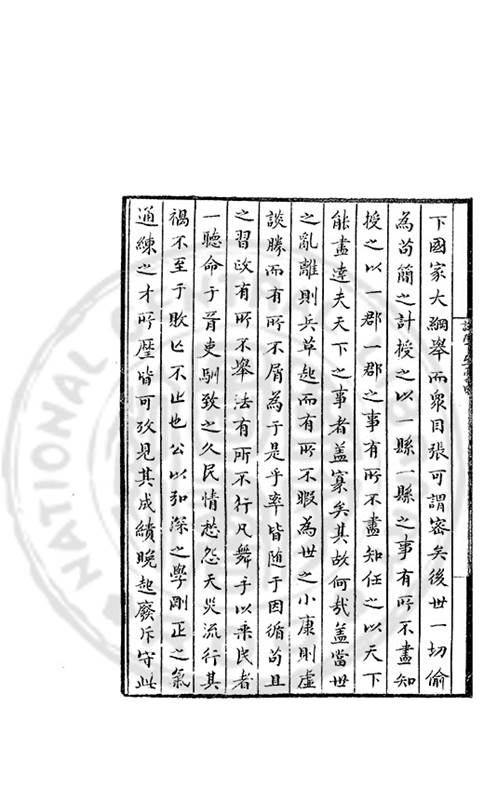 下國家大綱舉而衆目張可謂密矣後世一切偷
為苟簡之計授之以一縣一縣之事有所不盡知
授之以一郡一郡之事有所不盡知任之以天下
能盡達夫天下之事者盖寡矣其故何哉盖當世
之亂離則兵革起而有所不暇為世之小康則虛
談勝而有所不屑為于是乎率皆随于因循苟且
之習政有所不舉法有所不行凡舞手以乘民者
一聽命于胥吏馴致之久民情愁怨天災流行其
禍不至于敗亡不止也公以弘深之學剛正之氣
通練之才所歴皆可攷見其成績晚起廢斥守此
NATIONAL